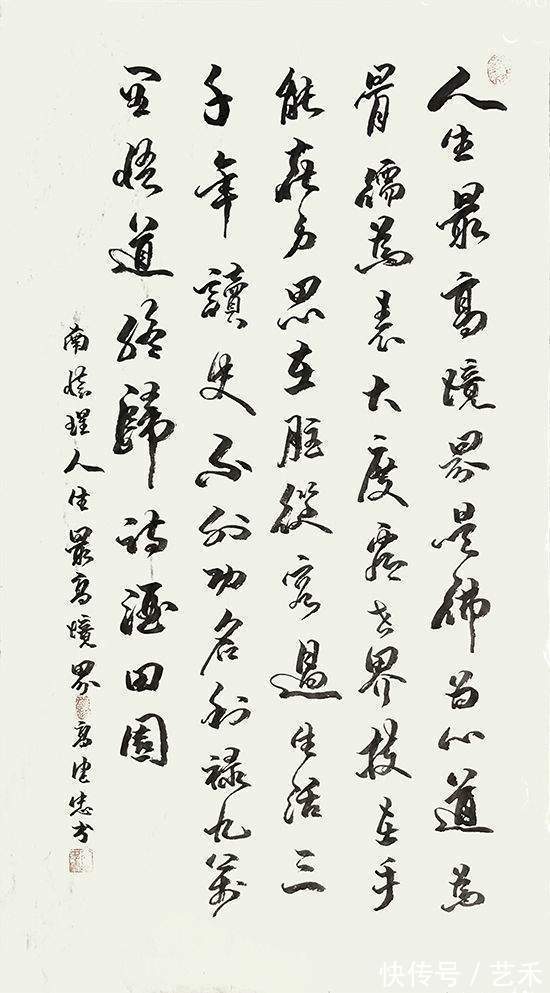 人生最高境界是佛為心道為
骨儒為表大度看世界技在手
能在身思在腦從容過生活三
千年讀史不外功名利禄九萬
里悟道終歸詩酒田園
南懷瑾人生最高境界 高忠书
快传号/艺禾